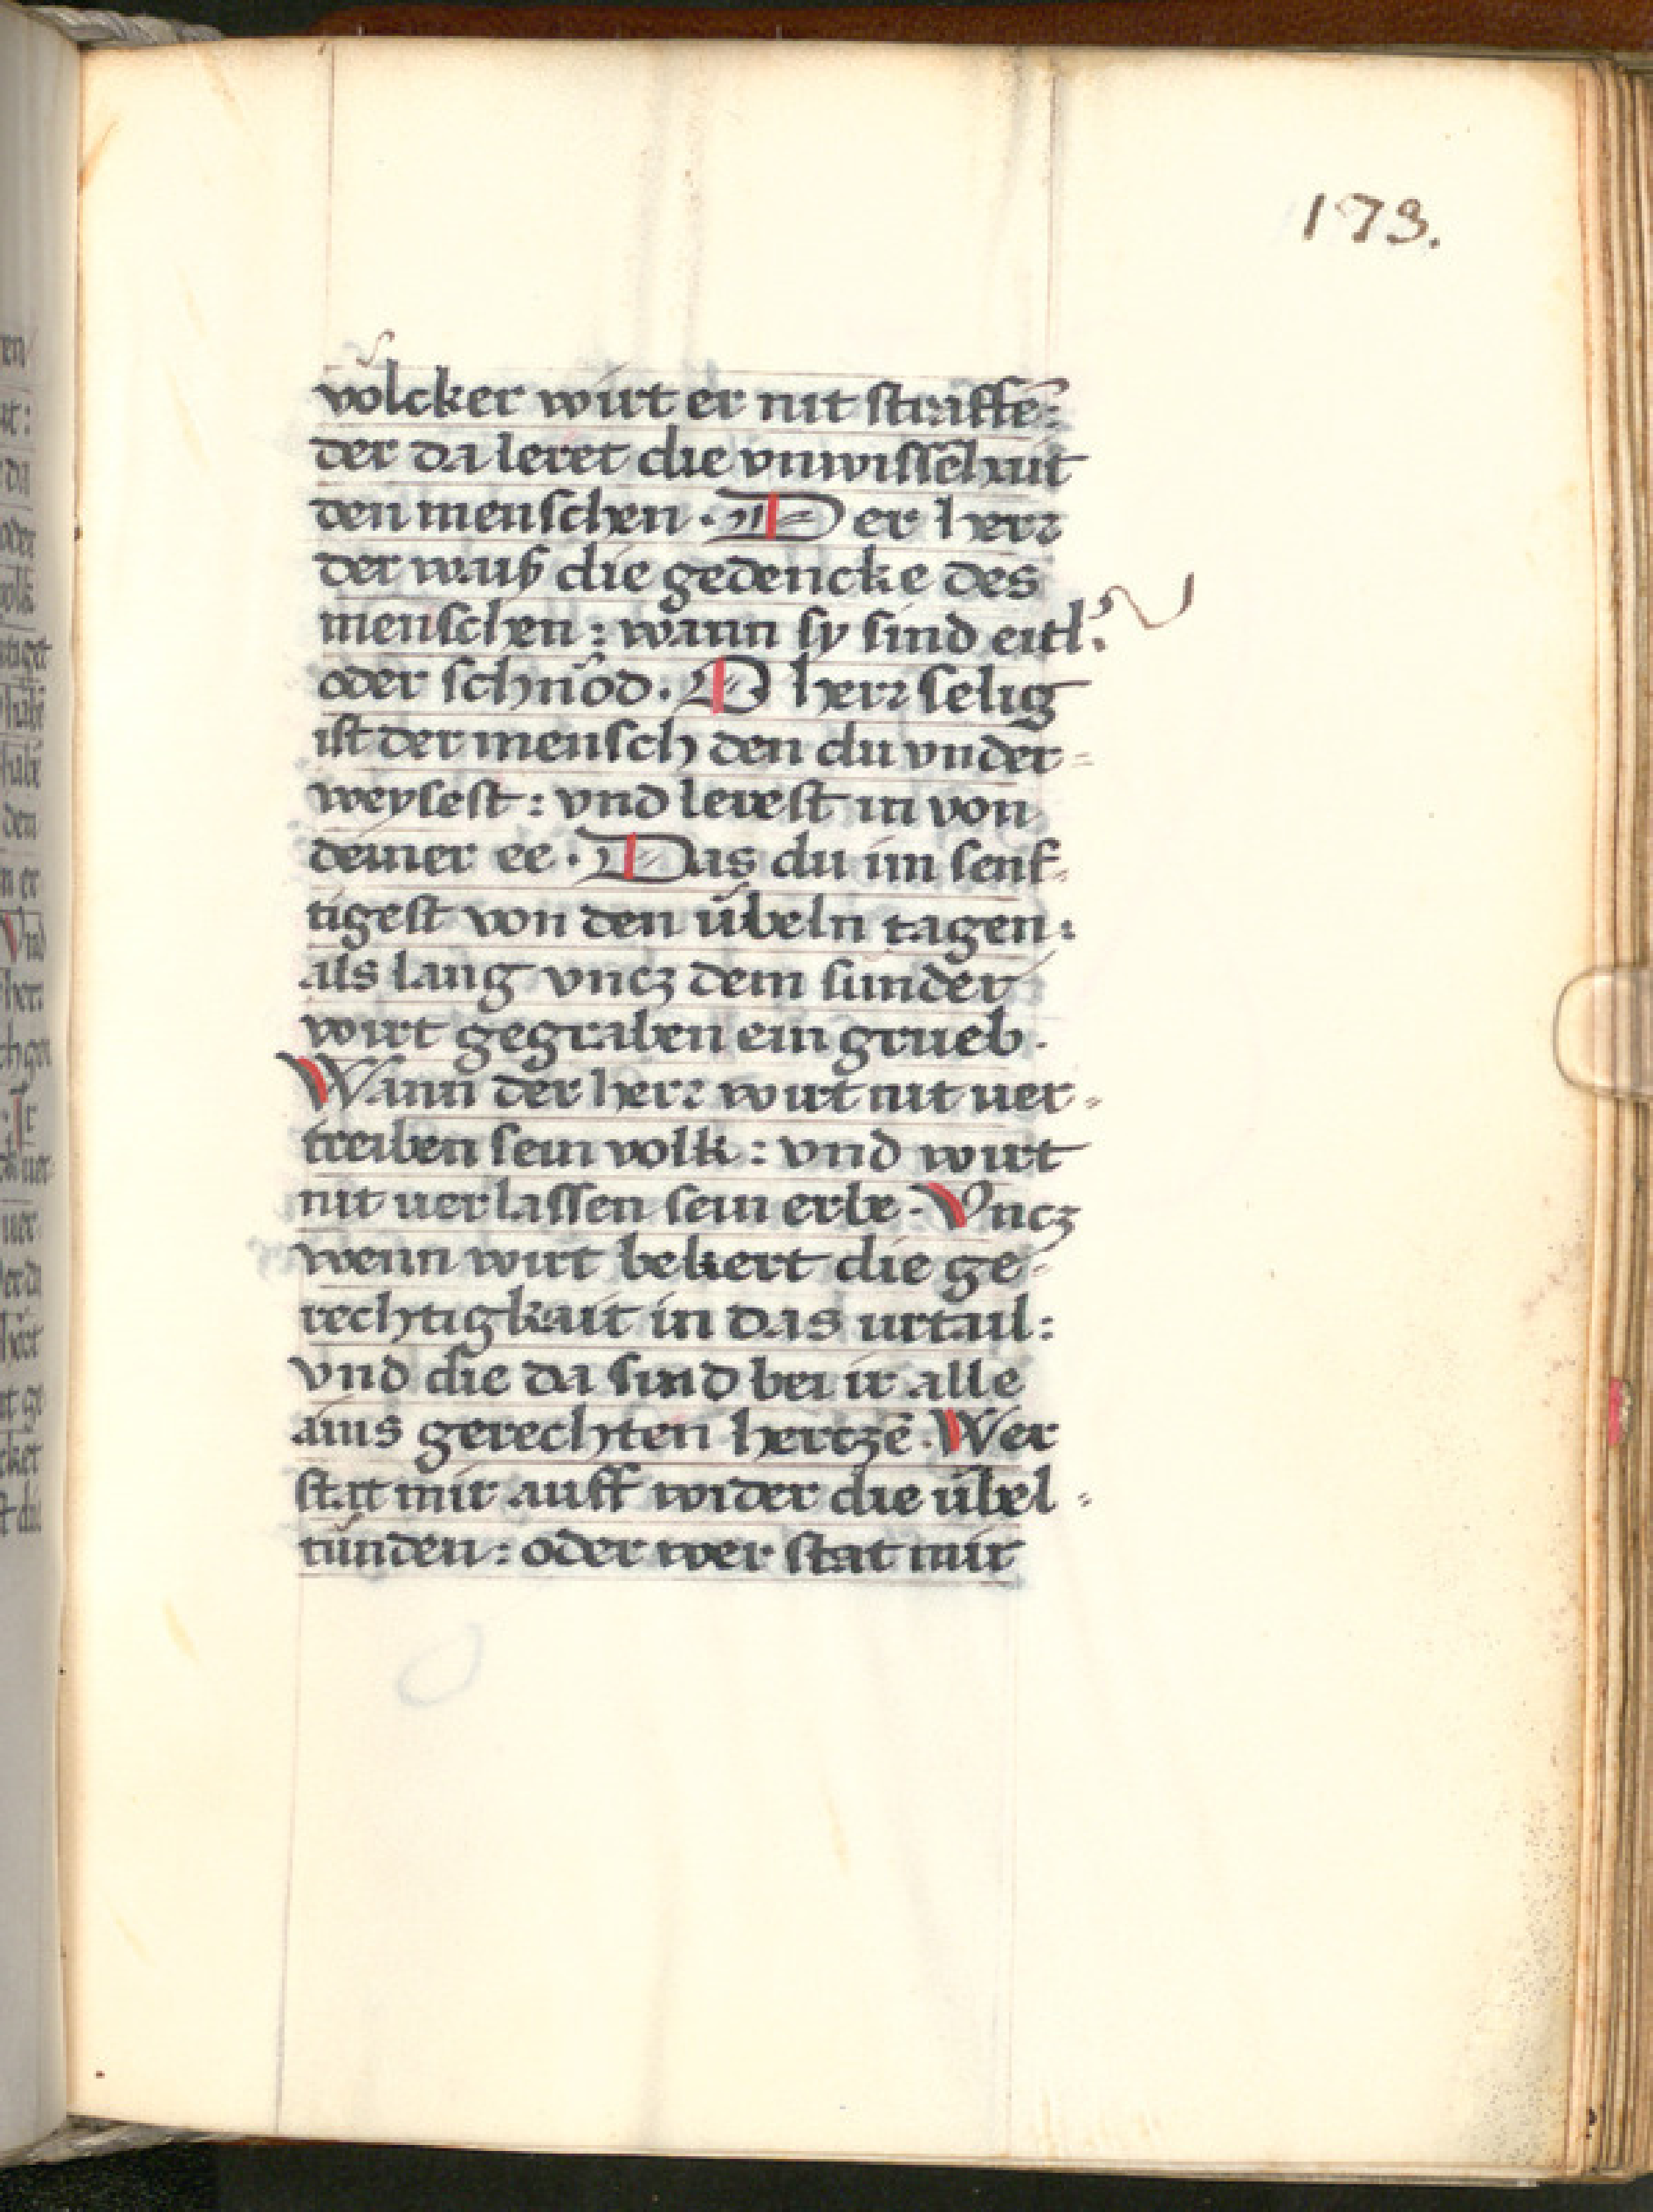 173.
völcker wirt er nit straffē:
der da leret die vnwissēhait
den menschen. Der herr
der waiß die gedencke des
menschen: wann sy sind eitl᾽:
oder schnöd. O herr selig
ist der mensch den du vnder-
weysest: vnd lerest in von
deiner ee. Das du im senf-
tigest von den übeln tagen:
als lang vncz dem sünder
wirt gegraben ein grueb.
Wann der herr wirt nit uer-
treiben sein volk: vnd wirt
nit uerlassen sein erbe. Vncz
wenn wirt bekert die ge-
rechtigkait in das urtail:
vnd die da sind bei ir alle
ains gerechten hertzē. Wer
stat mir auff wider die übel-
tünden: oder wer stat mir